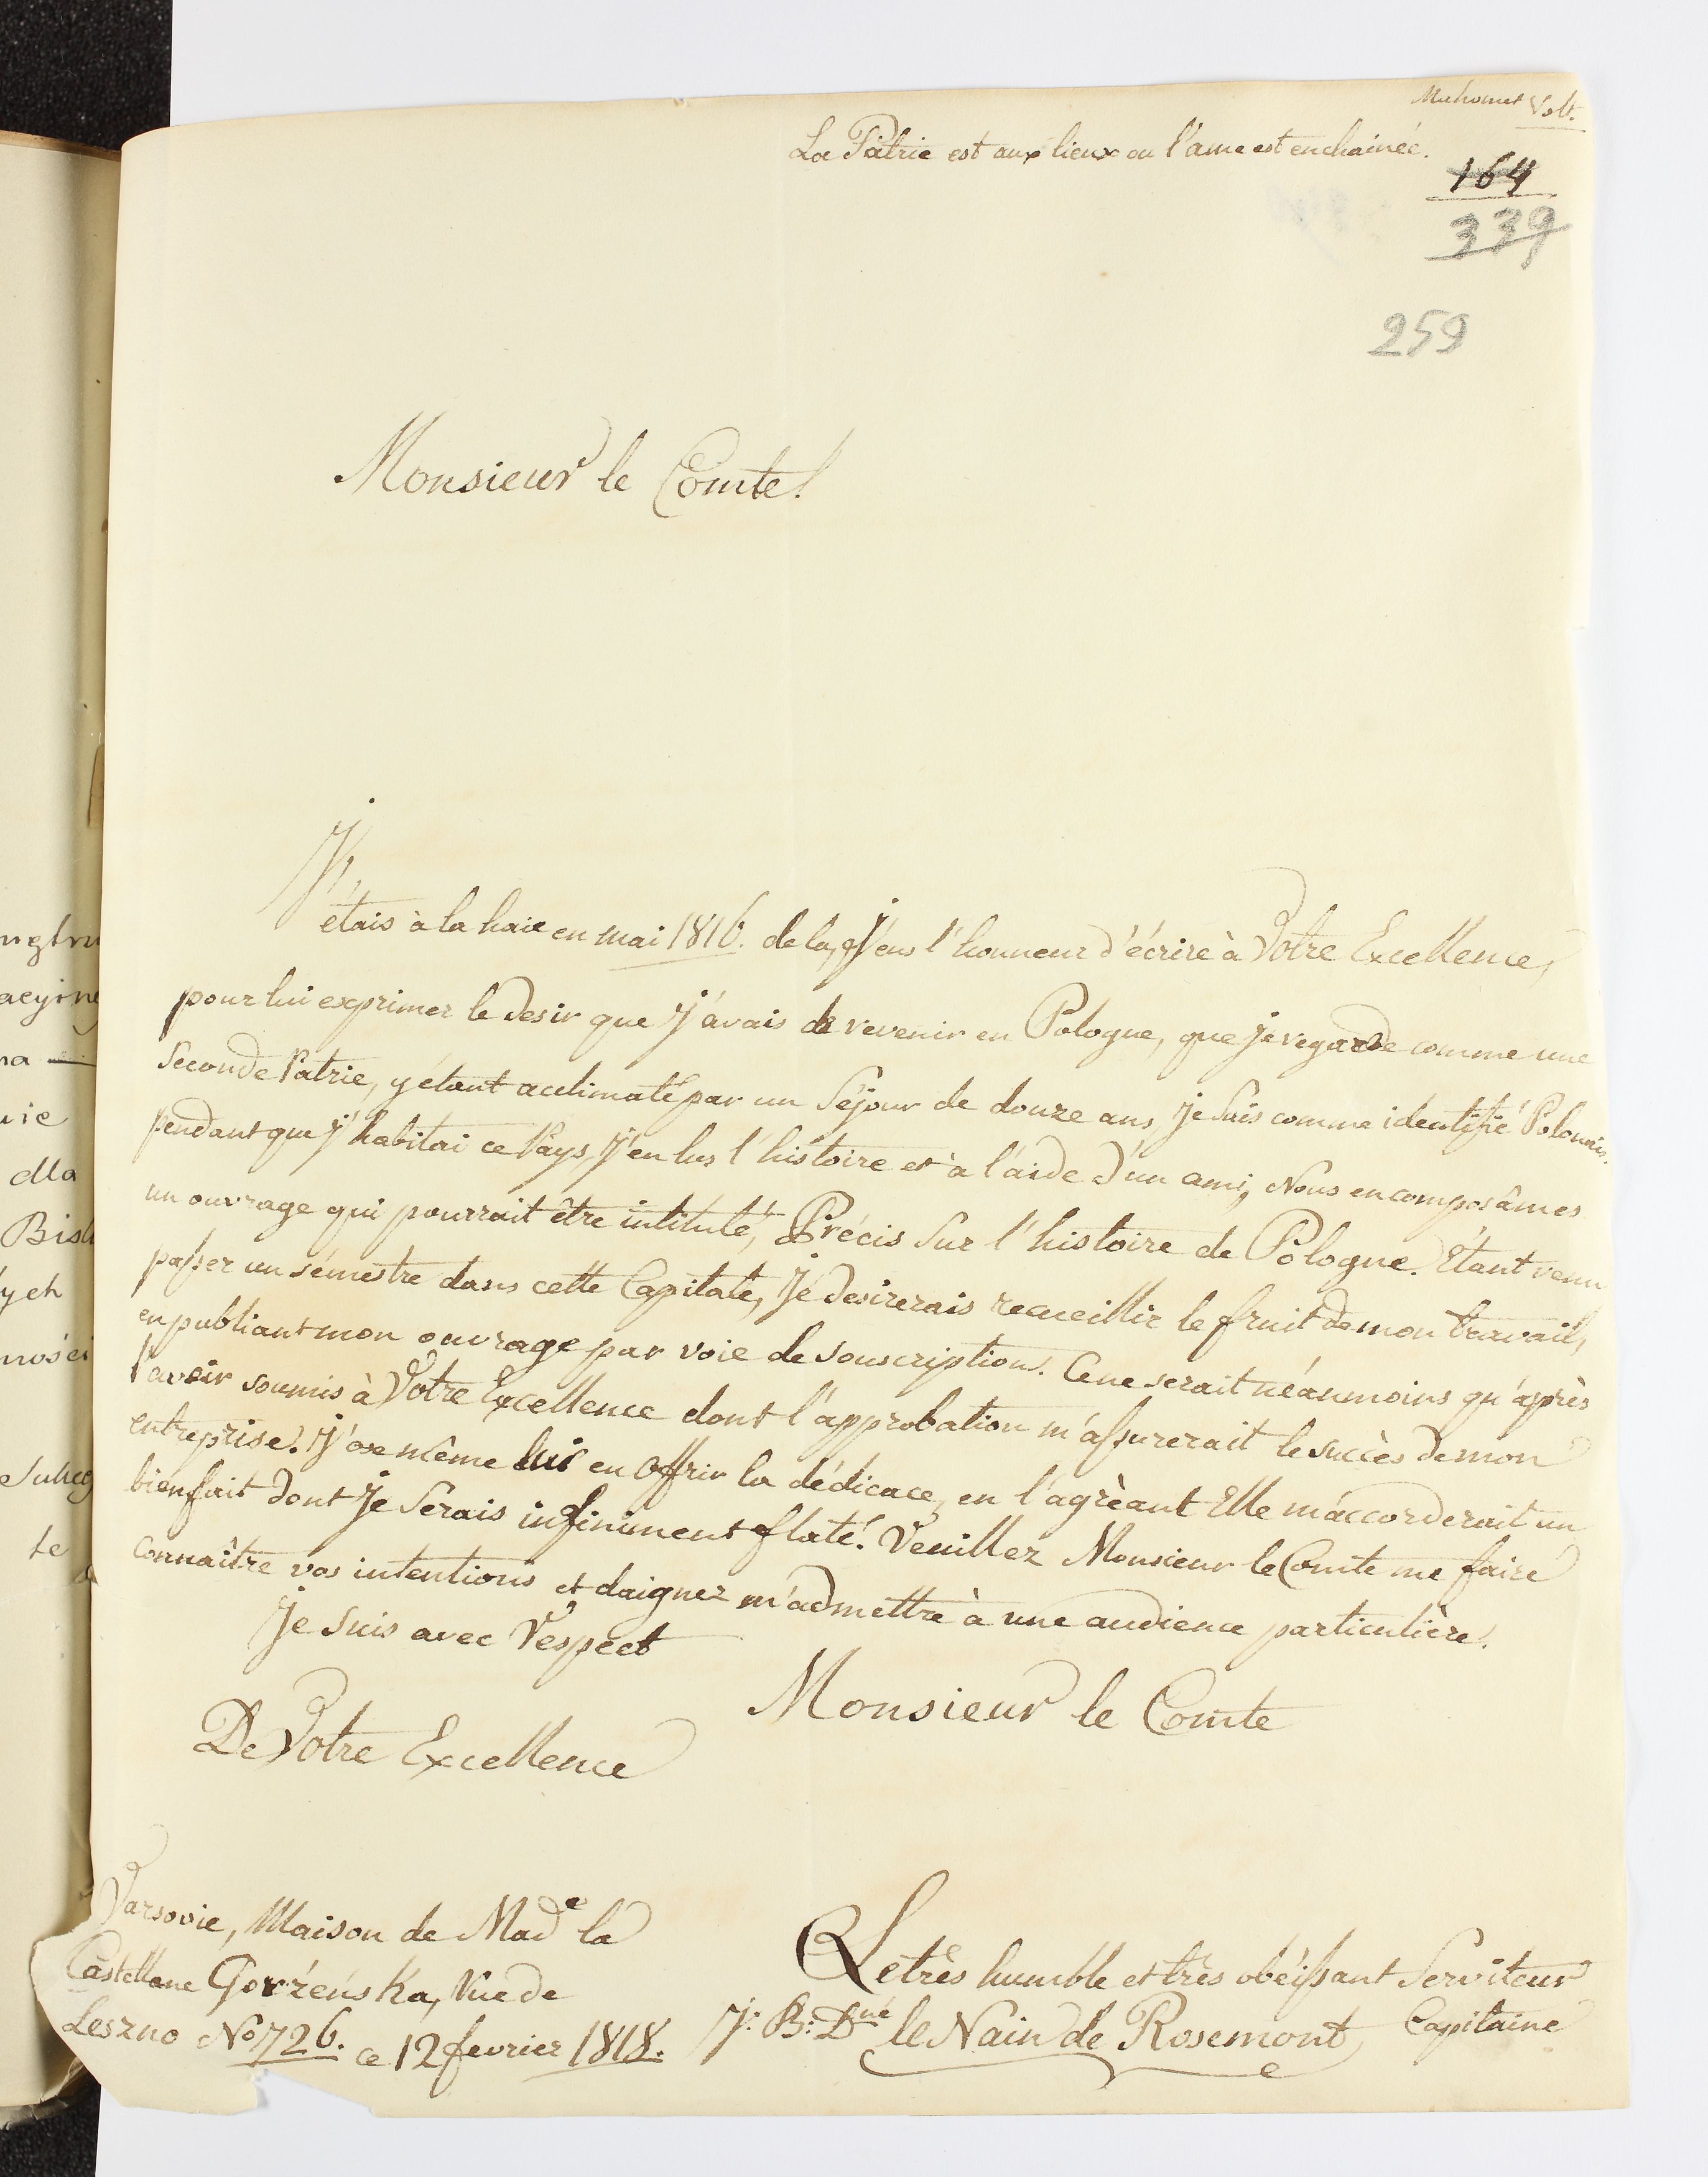 Mahomet Volt.
La Patrie est aux lieux ou l'ame est enchainée.
164
339
259
Monsieur le Comte!
J'étais à la haie en mai 1816. de la, J'eus l'honneur d'écrire à Votre Excellence,
pour lui exprimer le desir que J'avais de revenir en Pologne, que je regarde comme une
Seconde Patrie, y étant acclimaté par un Séjour de douze ans, Je suis comme identifié Polonais.
Pendant que J'habitai ce Pays, J'en lus l'histoire et à l'aide d'un ami, Nous en composâmes
un ouvrage qui pourrait être intitulé, Précis Sur l'histoire de Pologne. Étant venu
passer un sémestre dans cette Capitale, Je desirerais recueillir le fruit de mon travail,
en publiant mon ouvrage par voie de souscription. Ce ne serait néanmoins qu'après
l'avoir soumis à Votre Excellence dont l'approbation m'assurerait le succès de mon
entreprise. J'ose même lui en offrir la dédicace, en l'agrèant Elle m'accorderait un
bienfait dont Je Serais infiniment flaté. Veuillez Monsieur le Comte me faire
connaître vos intentions et daignez m'admettre à une audience particulière.
Je Suis avec Respect
Monsieur le Comte
De Votre Excellence
Varsovie, Maison de Made la
Castellane Gorzeńska, Rue de
Leszno No 726. ce 12 fevrier 1818.
Le très humble et très obéissant Serviteur
J: B: Dné le Nain de Rosemont, Capitaine